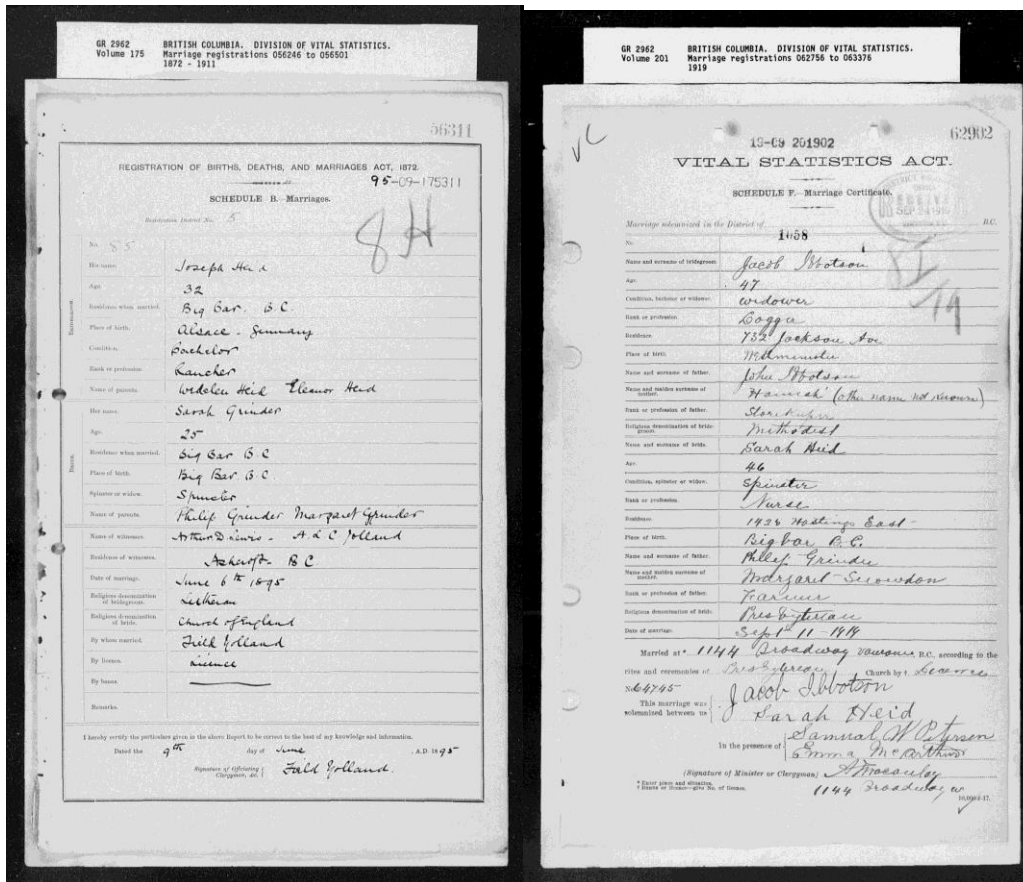 GR 2962 BRITISH COLUMBIA. DIVISION OF VITAL STATISTICS.
Volume 175 Marriage registrations 056246 to 056501
1872 - 1911
56311
REGISTRATION OF BIRTHS, DEATHS, AND MARRIAGES ACT, 1872.
95-09-175311
SCHEDULE B.—Marriages.
8H
Registration District No. 5
No. 85
BRIDEGROOM.
His name. Joseph Heid
Age. 32
Residence when married. Big Bar. B.C.
Place of birth. Alsace - Germany
Condition. Bachelor
Rank or profession. Rancher
Name of parents. Heid Eleanor Heid
BRIDE.
Her name. Sarah Grinder
Age. 25
Residence when married. Big Bar B C
Place of birth. Big Bar B.C.
Spinster or widow. Spinster
Name of parents. Philip Grinder Margaret Grinder
Name of witnesses. Arthur D. Lewis - A. L C Yolland
Residence of witnesses. Ashcroft - B C
Date of marriage. June 6th 1895
Religious denomination of bridegroom. Lutheran
Religious denomination of bride. Church of England
By whom married. Field Yolland
By licence. Licence
By banns.
Remarks.
I hereby certify the particulars given in the above Report to be correct to the best of my knowledge and information.
Dated the 9th day of June , A.D. 1895
Signature of Officiating Clergyman, &c. Field Yolland.
GR 2962 BRITISH COLUMBIA. DIVISION OF VITAL STATISTICS.
Volume 201 Marriage registrations 062756 to 063376
1919
62902
19-09 201902
VITAL STATISTICS ACT.
SCHEDULE F.—Marriage Certificate.
Marriage solemnized in the District of B.C.
No. 1058
Name and surname of bridegroom. Jacob Ibbotson
Age. 47
Condition, bachelor or widower. widower
Rank or profession. Logger
Residence. 732 Jackson Ave
Place of birth. Westminster
Name and surname of father. John Ibbotson
Name and maiden surname of mother. Hannah (other name not known)
Rank or profession of father. Storekeeper
Religious denomination of bridegroom. Methodist
Name and surname of bride. Sarah Heid
Age. 46
Condition, spinster or widow. Spinster
Rank or profession. Nurse
Residence. 1924 Hastings East -
Place of birth. Big bar B.C.
Name and surname of father. Philip Grinder
Name and maiden surname of mother. Margaret Snowdon
Rank or profession of father. Farmer
Religious denomination of bride. Presbyterian
Date of marriage. Sept 11 - 1919
Married at * 1144 Broadway Vancouver B.C., according to the
rites and ceremonies of Presbyterian Church by † Licence
No 64745
This marriage was solemnized between us { Jacob Ibbotson
Sarah Heid
In the presence of { Samual W Petersen
Emma McArthur
(Signature of Minister or Clergyman)
* Enter place and situation.
† Banns or licence—give No. of licence.
1144 Broadway W